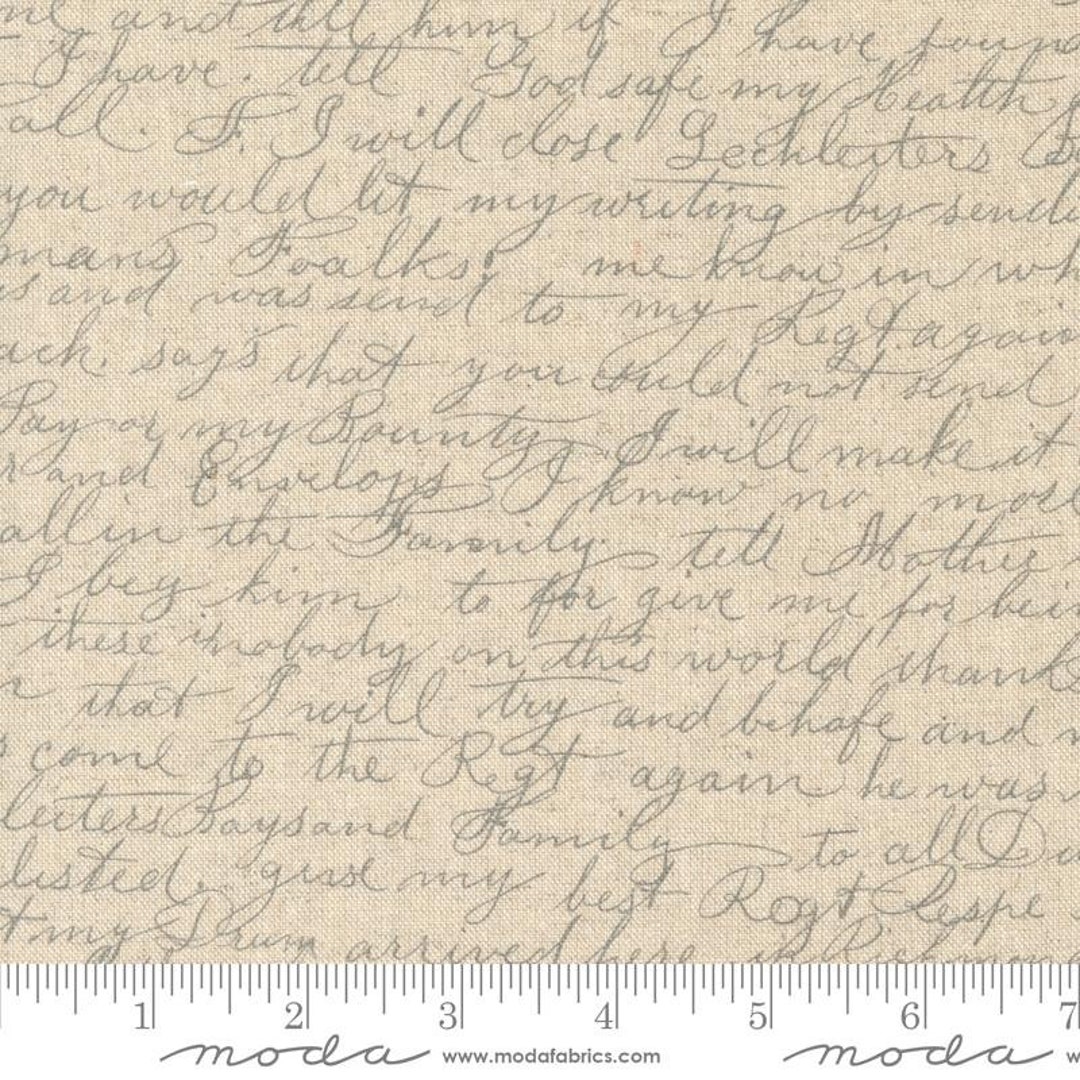 me and tell him if I have found
I have. tell God safe my Health
all. F. I will close Lechleiters
you would let my writing by sendi
mans Foalks. me know in wh
and was send to my Regt. again
ack. says that you could not send
Pay or my Bounty, I will make it
and Envelops I know no more
all in the Family. tell Mother
I beg him to for give me for bein
these is nobody on this world thank
that I will try and behafe and
come to the Regt again he was
leiters Boys and Family to all D
listed. give my best Regt Respe
t my Drum arrived here in Richmon
1 2 3 4 5 6 7
moda www.modafabrics.com moda w